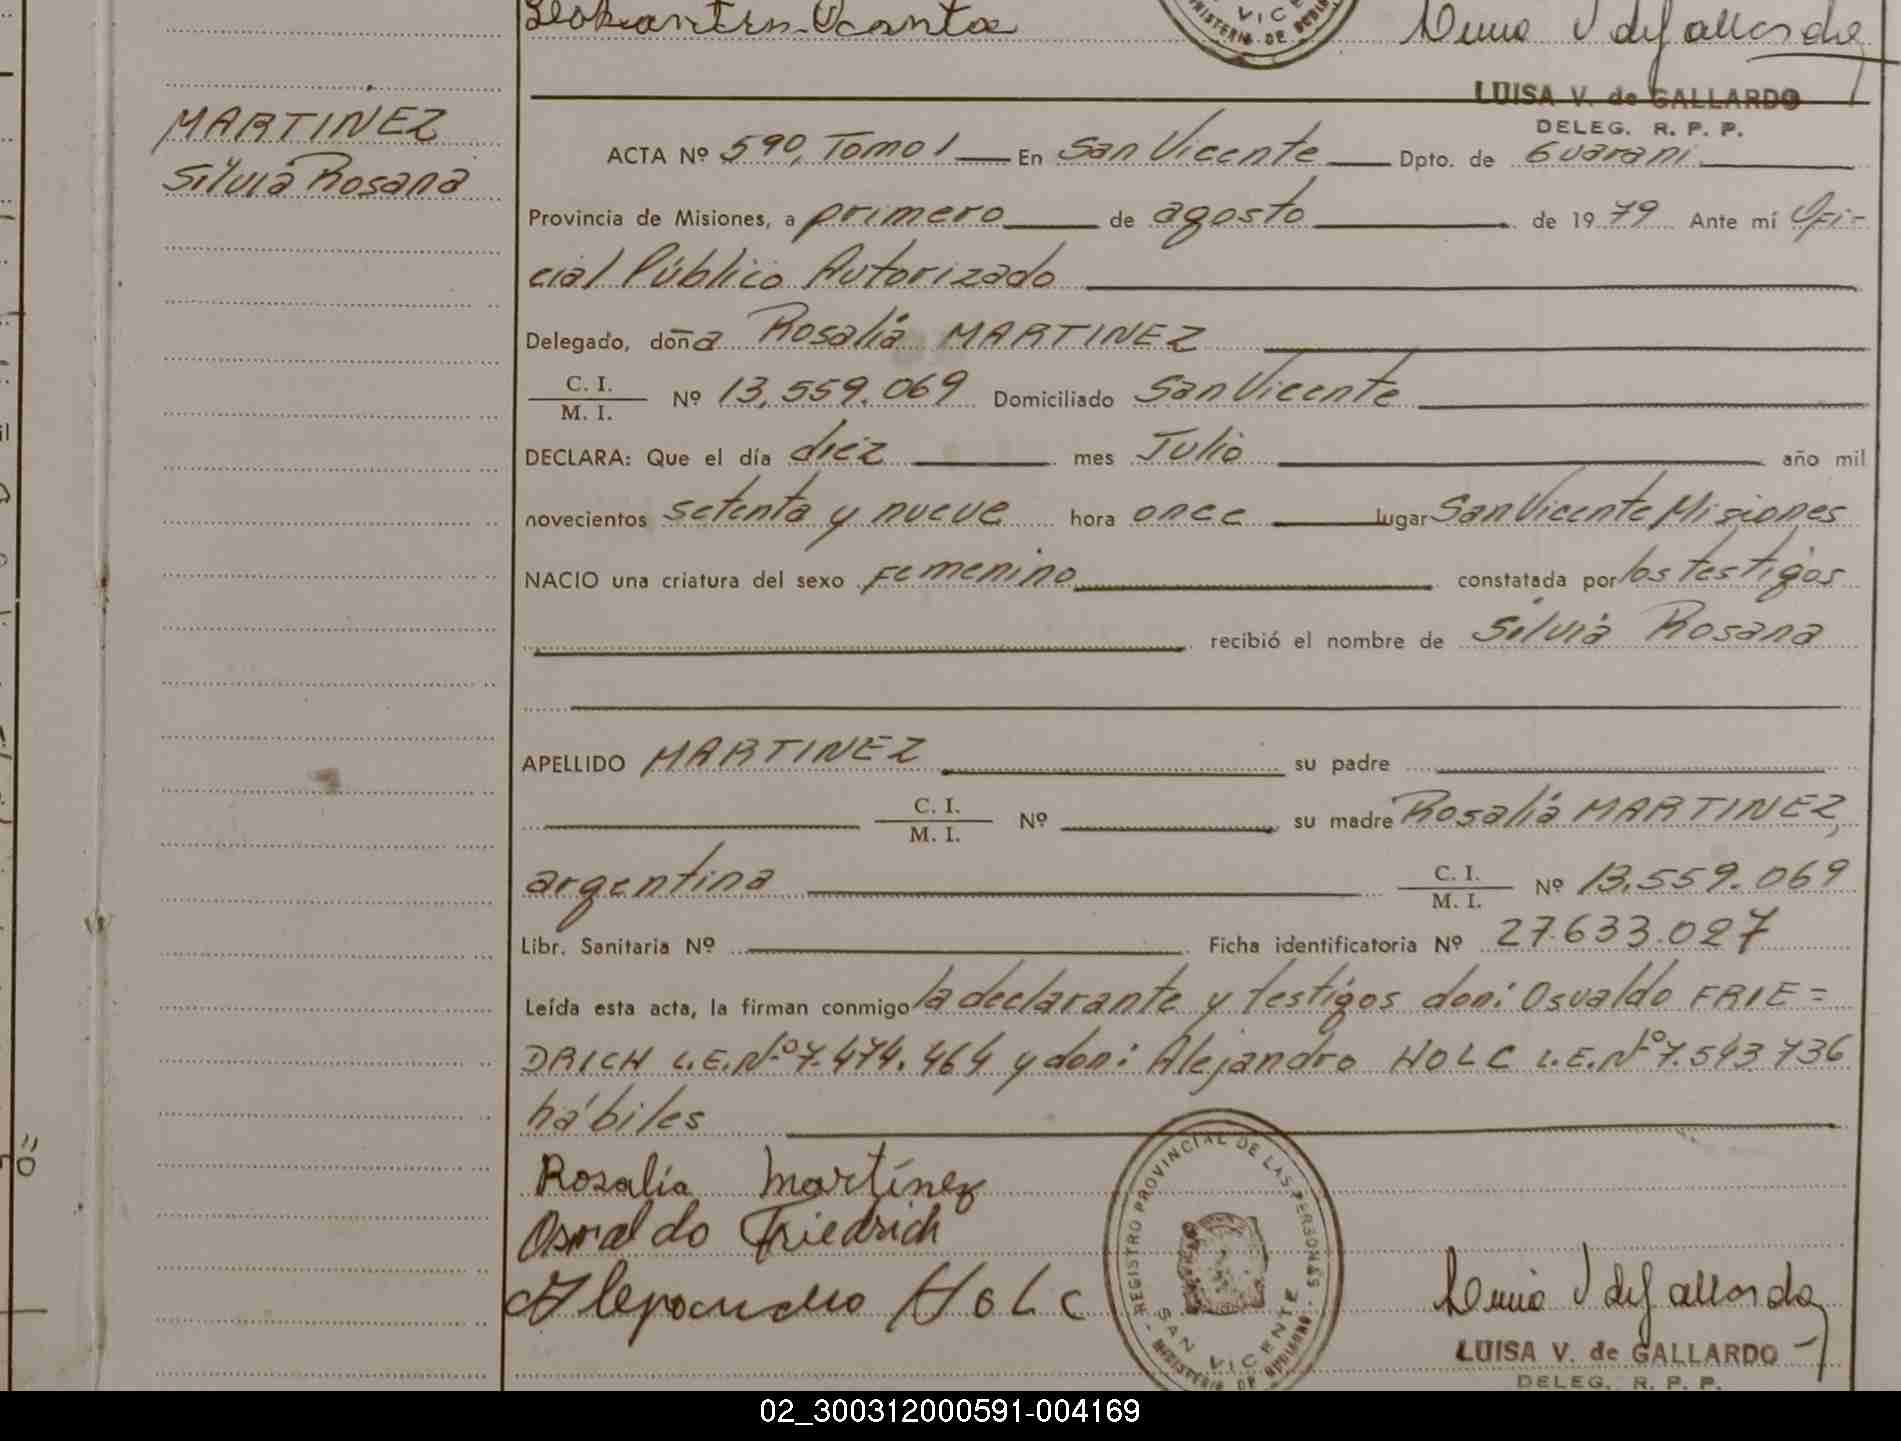 LUISA V. de GALLARDO
DELEG. R. P. P.
MARTINEZ
Silvia Rosana
ACTA Nº 590, Tomo 1 En San Vicente Dpto. de Guarani
Provincia de Misiones, a primero de agosto de 1979 Ante mí Ofi-
cial Público Autorizado
Delegado, doña Rosalia MARTINEZ
C. I.
M. I. Nº 13.559.069 Domiciliado San Vicente
DECLARA: Que el día diez mes Julio año mil
novecientos setenta y nueve hora once lugar San Vicente, Misiones
NACIO una criatura del sexo Femenino constatada por los testigos
recibió el nombre de Silvia Rosana
APELLIDO MARTINEZ su padre
C. I.
M. I. Nº su madre Rosalia MARTINEZ,
argentina C. I.
M. I. Nº 13.559.069
Libr. Sanitaria Nº Ficha identificatoria Nº 27.633.027
Leída esta acta, la firman conmigo la declarante y testigos don: Osvaldo FRIE=
DRICH L.E.Nº 7.474.464 y don: Alejandro HOLC L.E.Nº 7.543.736
hábiles
Rosalía Martínez
Osvaldo Friedrich
Alejandro HOLC
REGISTRO PROVINCIAL DE LAS PERSONAS
SAN VICENTE
LUISA V. de GALLARDO
DELEG. R. P. P.
02_300312000591-004169